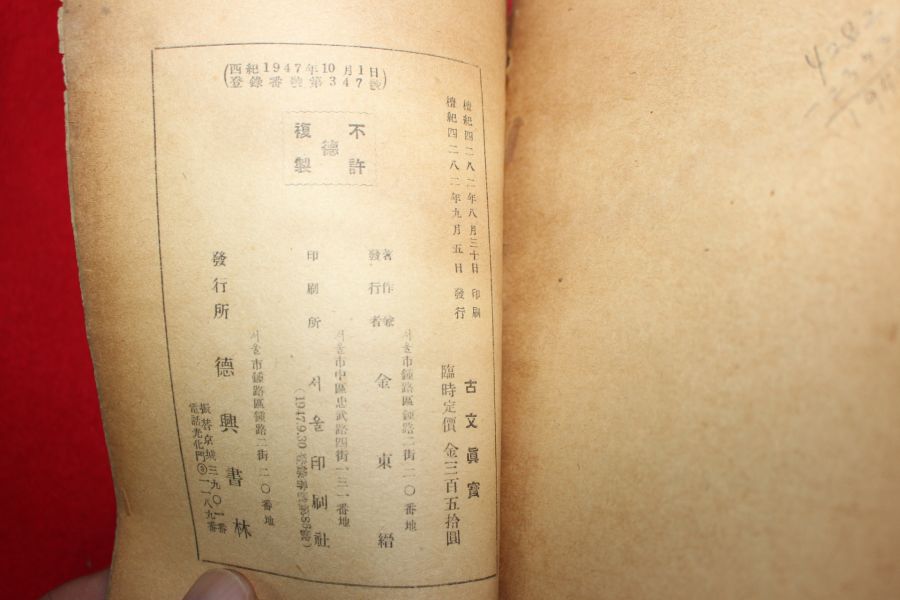 (西紀1947年10月1日
登錄番號第347號)
檀紀四二八二年八月三十日 印刷
檀紀四二八二年九月五日 發行
不許
複製
德
古文眞寶
臨時定價 金三百五拾圓
서울市鍾路區鍾路二街二〇番地
著作兼
發行者 金東縉
서울市中區忠武路四街一三一番地
印刷所 서울印刷社
서울市鍾路區鍾路二街二〇番地
發行所 德興書林
振替京城三九〇一番
電話光化門③一一八九番
4282